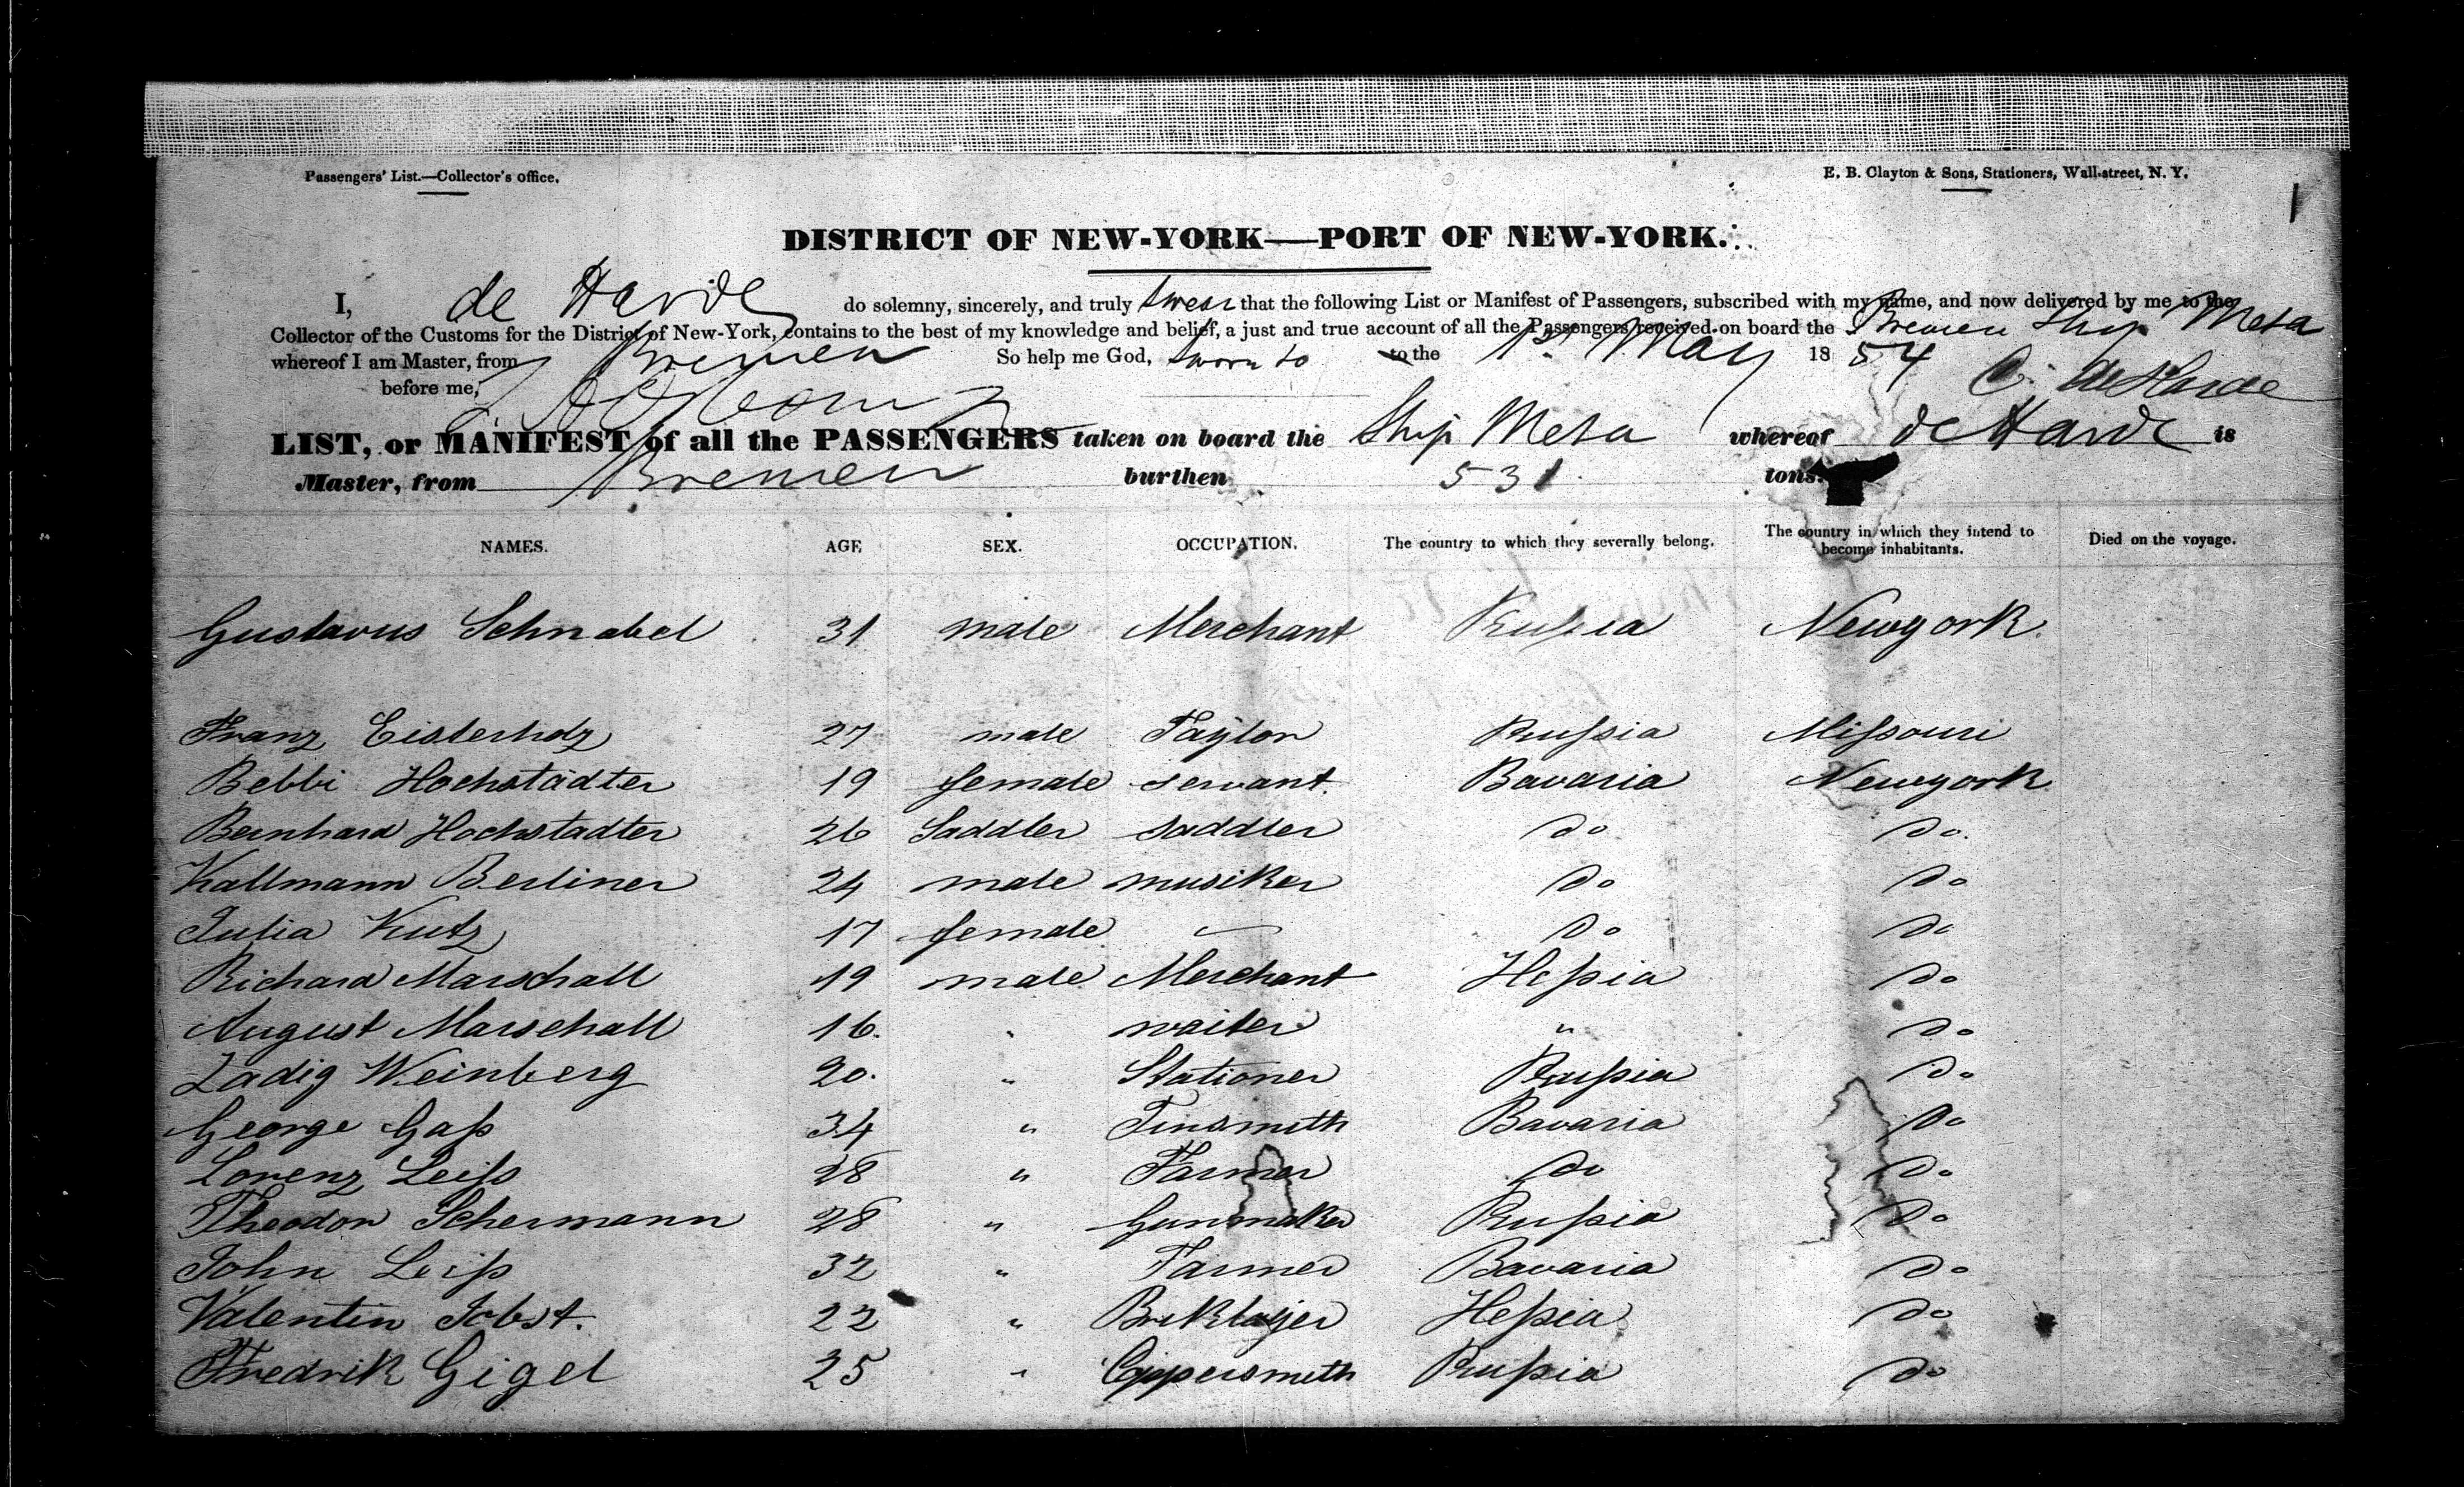 Passengers' List.—Collector's office.
E. B. Clayton & Sons, Stationers, Wall-street, N. Y.
1
DISTRICT OF NEW-YORK—PORT OF NEW-YORK.
I, de Harde do solemny, sincerely, and truly swear that the following List or Manifest of Passengers, subscribed with my name, and now delivered by me to the
Collector of the Customs for the District of New-York, contains to the best of my knowledge and belief, a just and true account of all the Passengers received on board the Bremen Ship Meta
whereof I am Master, from Bremen So help me God, sworn to to the 1st May 1854
before me, C. de Harde
LIST, or MANIFEST of all the PASSENGERS taken on board the Ship Meta whereof de Harde is
Master, from Bremen burthen 531 tons.
NAMES. AGE SEX. OCCUPATION. The country to which they severally belong. The country in which they intend to become inhabitants. Died on the voyage.
Gustavus Schnabel 31 male Merchant Prußia Newyork.
Franz Eisterholz 27 male Taylor Prußia Mißouri
Bebbi Hochstädter 19 female servant. Bavaria Newyork
Bernhard Hochstadter 26 Saddler saddler do do.
Kallmann Berliner 24 male musiker do do
Julia Kutz 17 female — do do
Richard Marschall 19 male Merchant Heßia do
August Marschall 16. " waiter " do
Zadig Weinberg 20. " Stationer Prußia do
George Gaß 34 " Tinsmith Bavaria do
Lorenz Leiß 28 " Farmer do do
Theodor Schermann 28 " Gunmaker Prußia do
John Leiß 32 " Farmer Bavaria do
Valentin Jobst. 22 " Briklayer Heßia do
Fredrik Gigel 25 " Coppersmith Prußia do